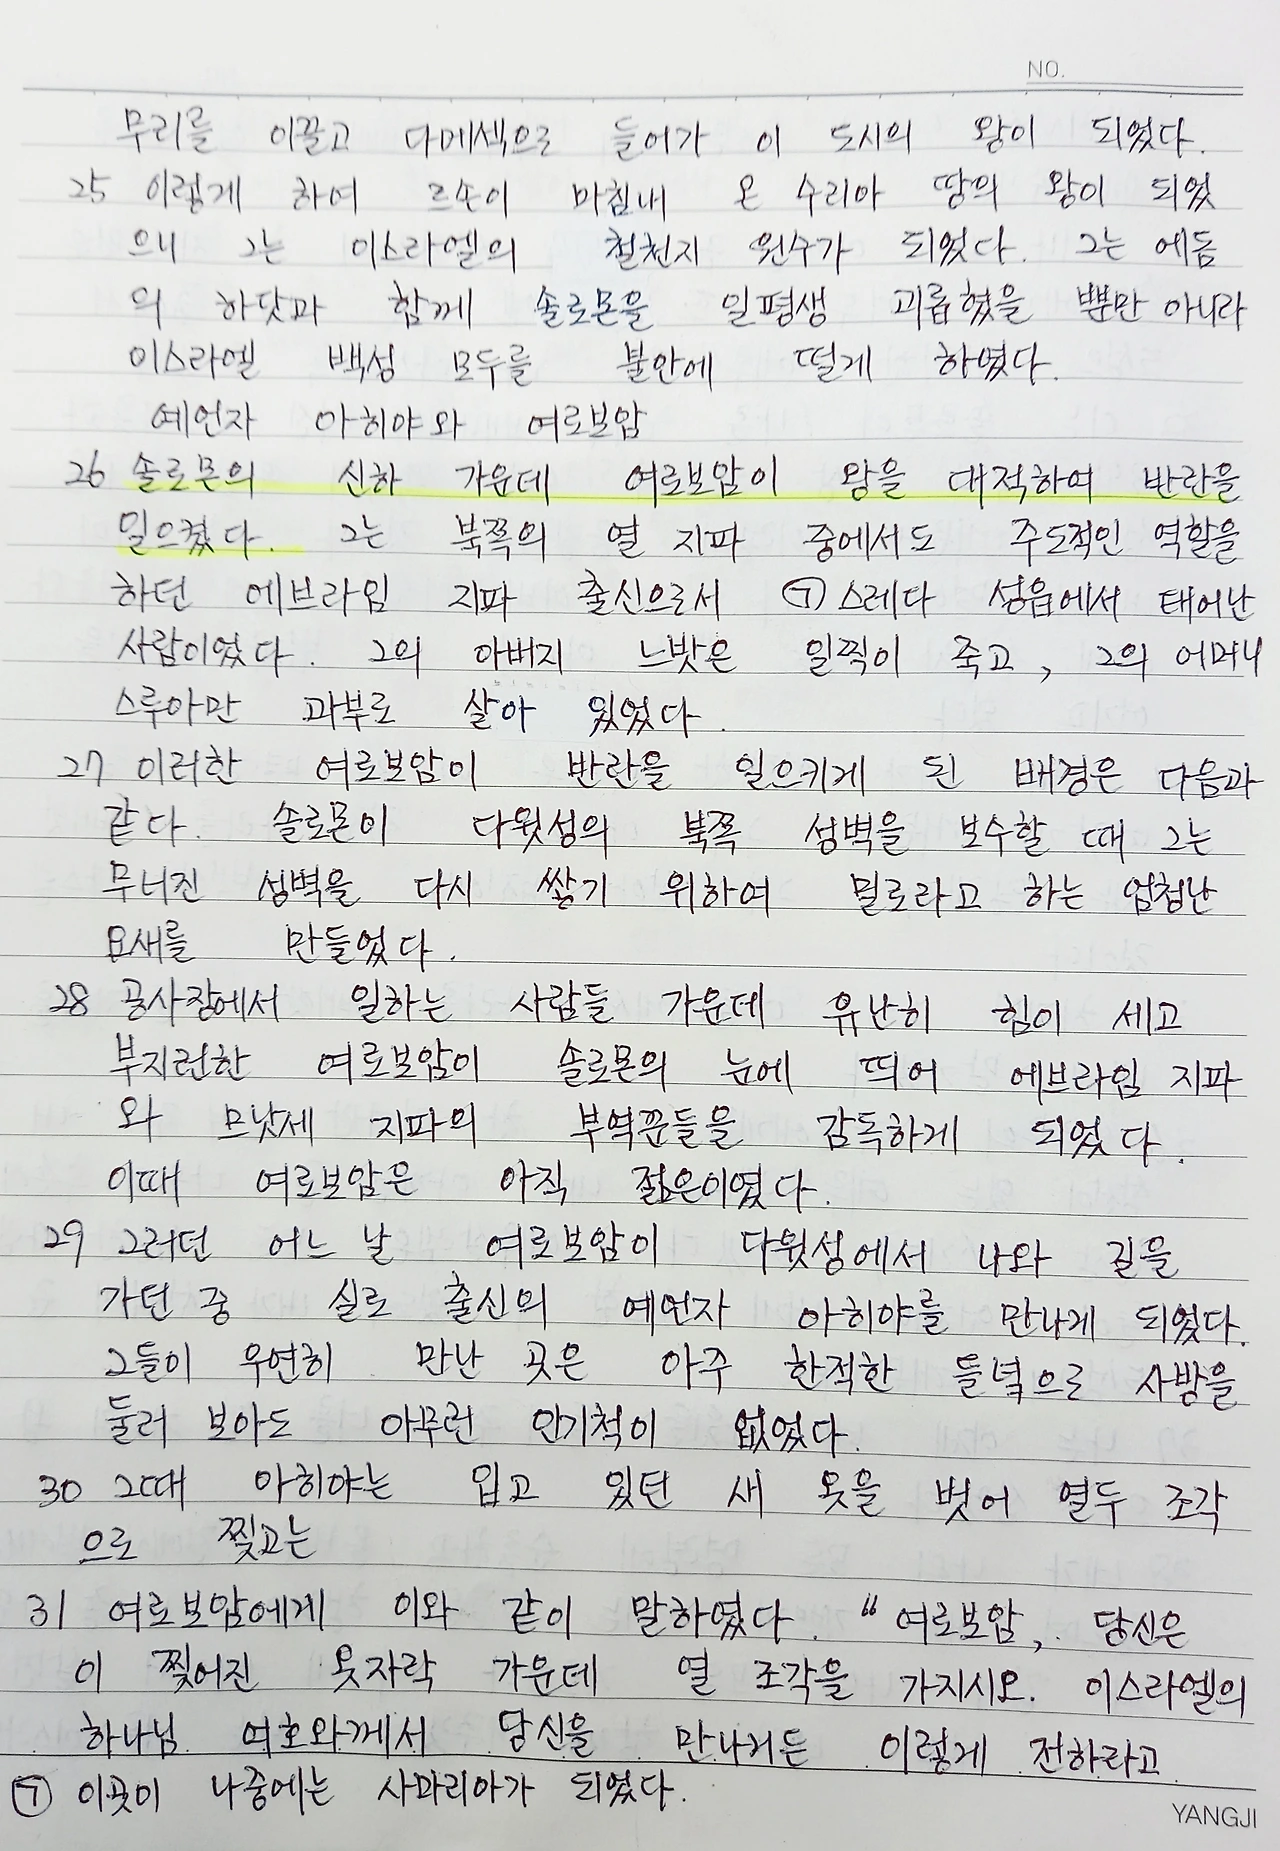 NO.
무리를 이끌고 다메섹으로 들어가 이 도시의 왕이 되었다.
25 이렇게 하여 르손이 마침내 온 수리아 땅의 왕이 되었
으니 그는 이스라엘의 철천지 원수가 되었다. 그는 에돔
의 하닷과 함께 솔로몬을 일평생 괴롭혔을 뿐만 아니라
이스라엘 백성 모두를 불안에 떨게 하였다.
예언자 아히야와 여로보암
26 솔로몬의 신하 가운데 여로보암이 왕을 대적하여 반란을
일으켰다. 그는 북쪽의 열 지파 중에서도 주도적인 역할을
하던 에브라임 지파 출신으로서 ㉠스레다 성읍에서 태어난
사람이었다. 그의 아버지 느밧은 일찍이 죽고, 그의 어머니
스루아만 과부로 살아 있었다.
27 이러한 여로보암이 반란을 일으키게 된 배경은 다음과
같다. 솔로몬이 다윗성의 북쪽 성벽을 보수할 때 그는
무너진 성벽을 다시 쌓기 위하여 밀로라고 하는 엄청난
요새를 만들었다.
28 공사장에서 일하는 사람들 가운데 유난히 힘이 세고
부지런한 여로보암이 솔로몬의 눈에 띄어 에브라임 지파
와 므낫세 지파의 부역꾼들을 감독하게 되었다.
이때 여로보암은 아직 젊은이였다.
29 그러던 어느 날 여로보암이 다윗성에서 나와 길을
가던 중 실로 출신의 예언자 아히야를 만나게 되었다.
그들이 우연히 만난 곳은 아주 한적한 들녘으로 사방을
둘러 보아도 아무런 인기척이 없었다.
30 그때 아히야는 입고 있던 새 옷을 벗어 열두 조각
으로 찢고는
31 여로보암에게 이와 같이 말하였다. "여로보암, 당신은
이 찢어진 옷자락 가운데 열 조각을 가지시오. 이스라엘의
하나님 여호와께서 당신을 만나거든 이렇게 전하라고
㉠ 이곳이 나중에는 사마리아가 되었다.
YANGJI